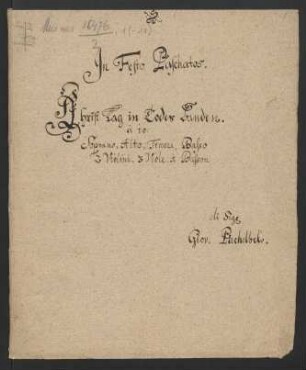 Mus. ms. 16476, 19-20)
2
In Festo Paschatos.
Christ lag in Todes Banden.
â 10.
Soprano, Alto, Tenore, Basso
2 Violini, 3 Viole, è Basson
di Sigr
Giov. Pachelbels.